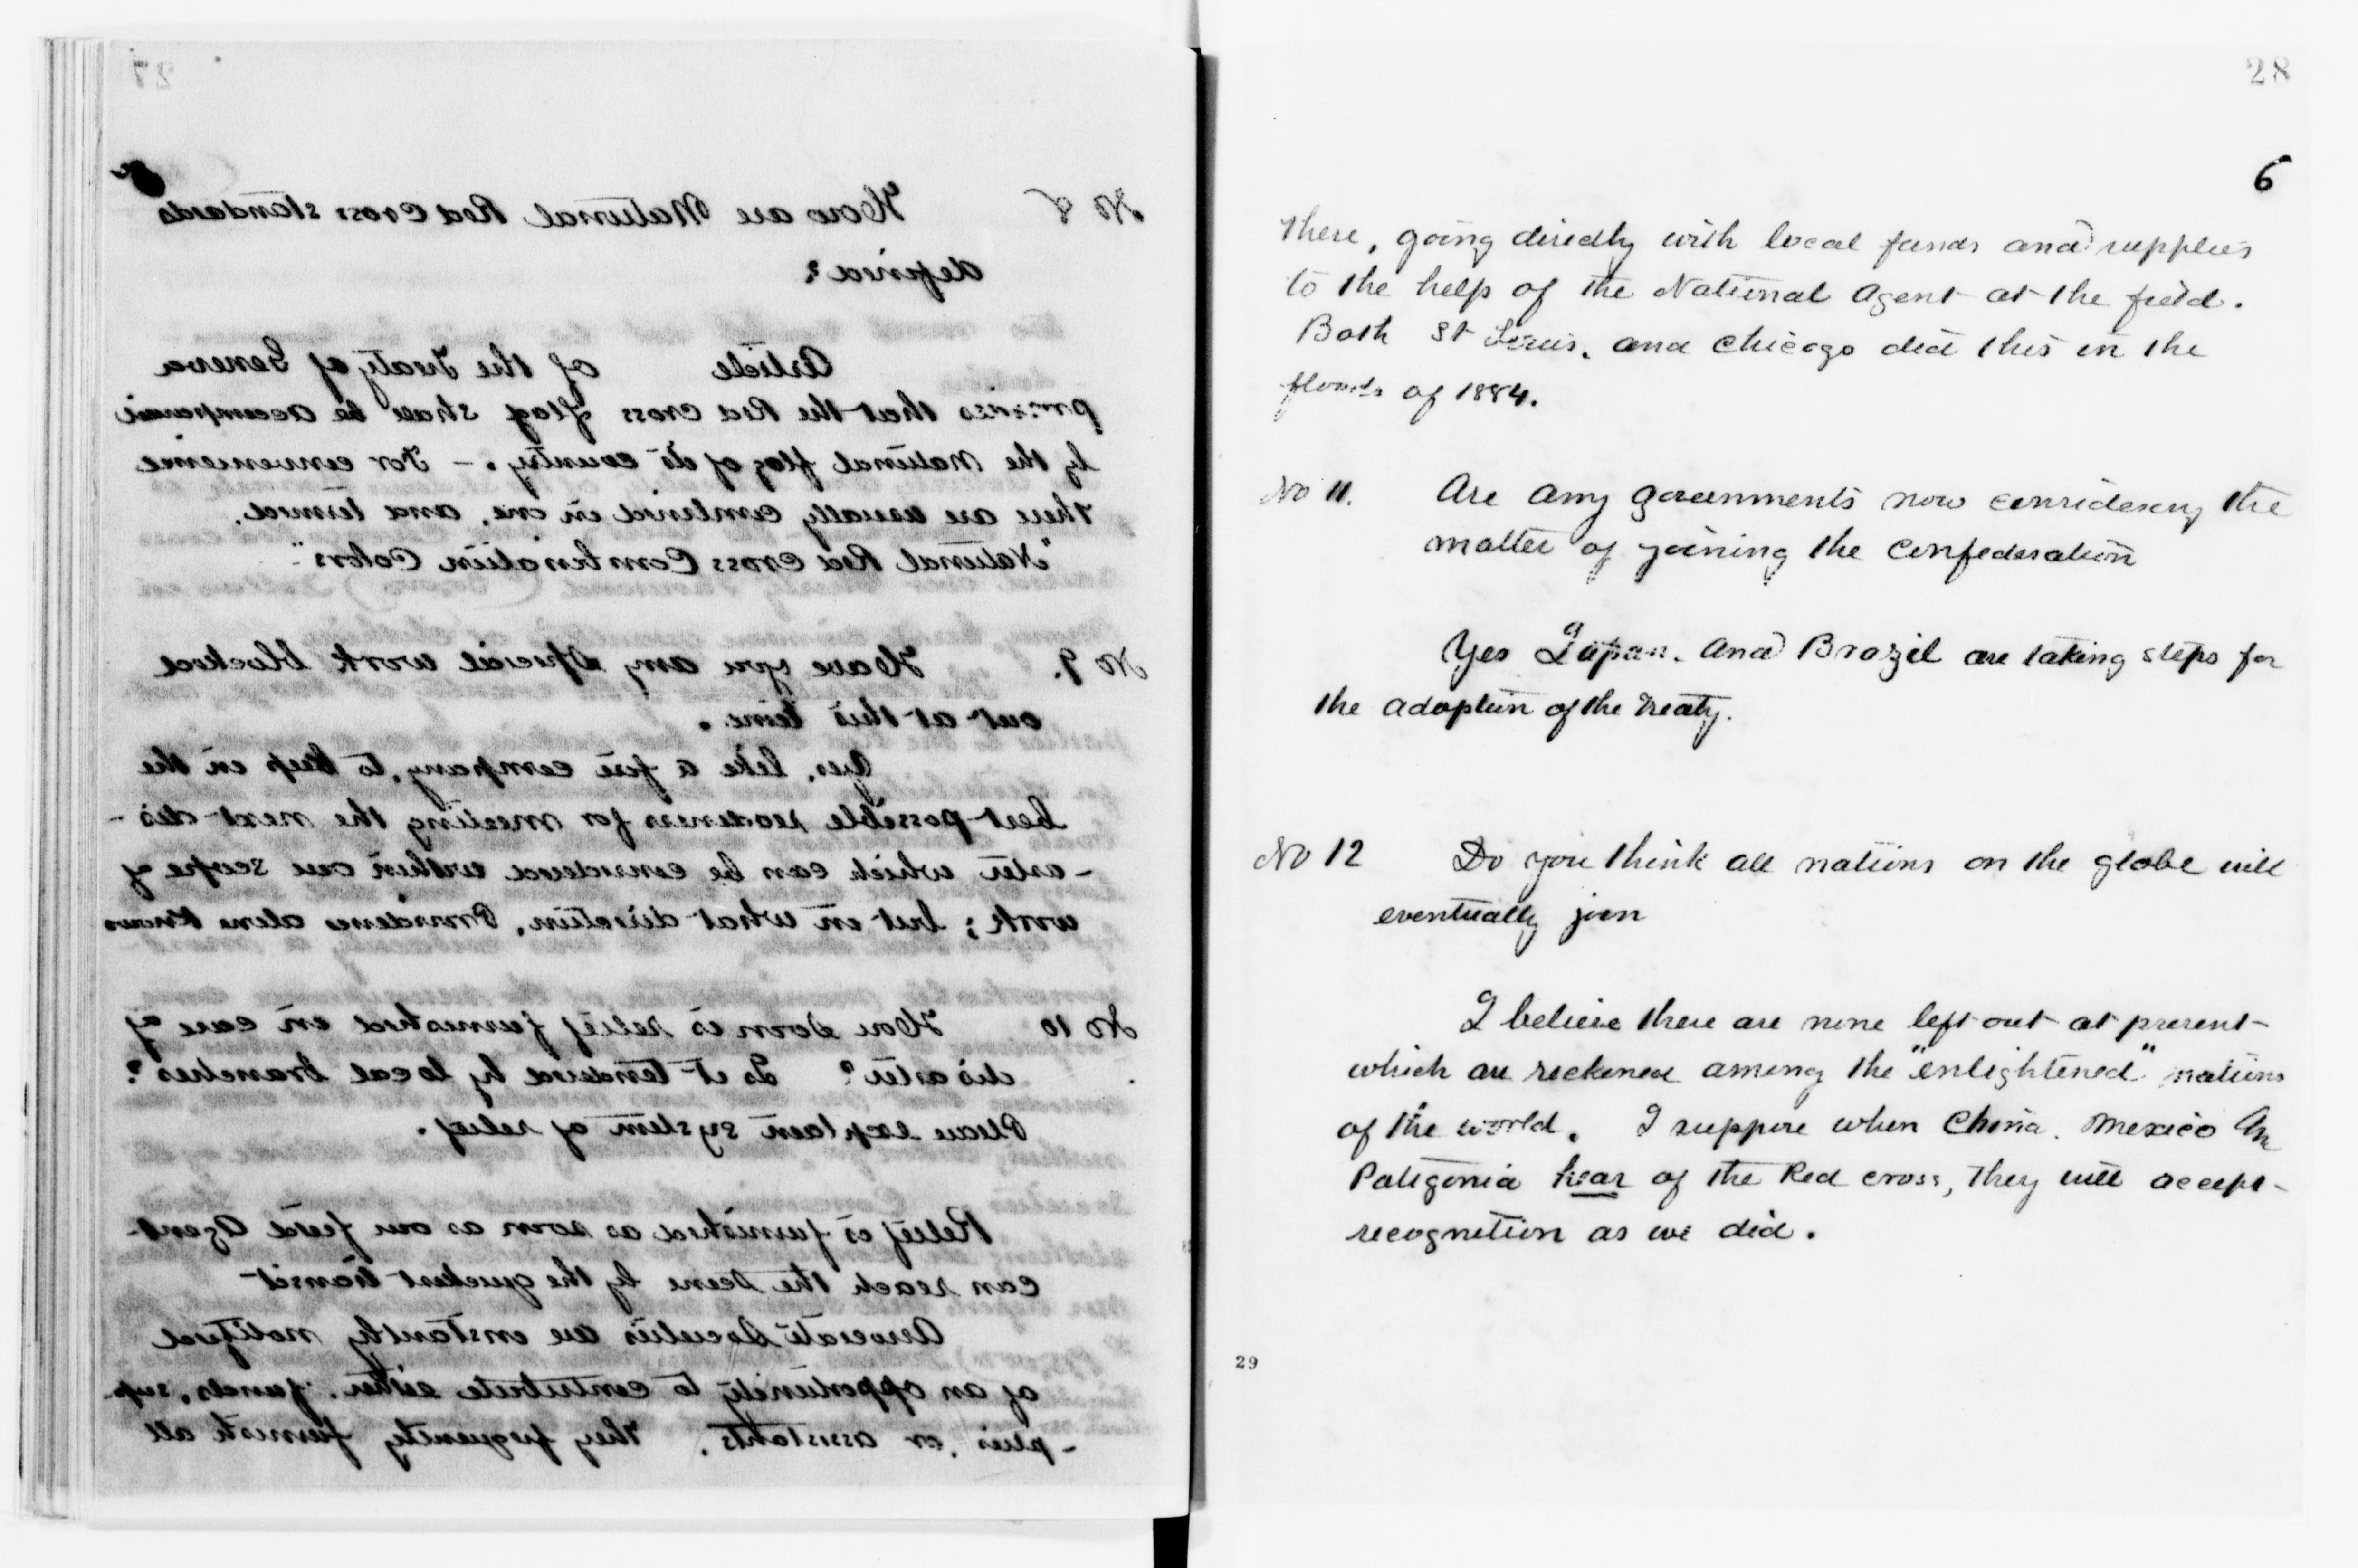 27
No 8 How are National Red Cross standards
defined?
Article of the Treaty of Geneva
provides that the Red Cross flag shall be accompanied
by the National flag of its country. – For convenience
these are usually combined in one, and termed.
"National Red Cross Combination Colors"
No 9. Have you any Special work blocked
out at this time.
Yes, like a fire company, to keep in the
best possible readiness for meeting the next dis-
-aster which can be considered within our scope of
work; but in what direction, Providence alone knows
No 10 How soon is relief furnished in case of
disaster? Is it tendered by local branches?
Please explain system of relief.
Relief is furnished as soon as our field Agent
can reach the scene by the quickest transit
Associate Societies are instantly notified
of an opportunity to contribute either. funds, sup-
-plies, or assistants. They frequently furnish all
28
6
there, going directly with local funds and supplies
to the help of the National Agent at the field.
Both St Louis. and Chicago did this in the
floods of 1884.
No 11. Are any governments now considering the
matter of joining the Confederation
Yes Japan. and Brazil are taking steps for
the adoption of the Treaty.
No 12 Do you think all nations on the globe will
eventually join
I believe there are none left out at present
which are reckoned among the "enlightened" nations
of the world. I suppose when China. Mexico
Patigonia hear of the Red cross, they will accept
recognition as we did.
29